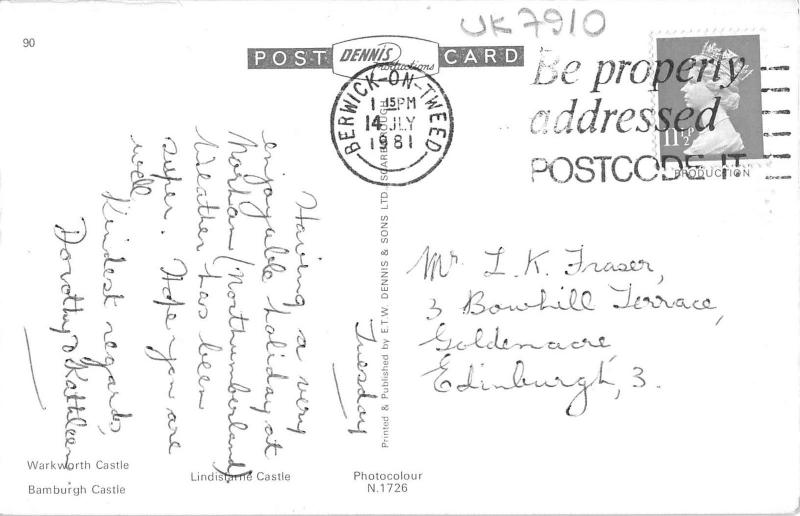 UK7910
90
POST DENNIS Productions CARD
BERWICK-ON-TWEED
1 15PM
14 JLY
1981
Be properly
addressed
POSTCODE IT
11½P
PRODUCTION
Tuesday
Having a very
enjoyable holiday at
Norham (Northumberland).
Weather has been
super. Hope you are
well,
Kindest regards,
Dorothy & Kathleen
Printed & Published by E.T.W. DENNIS & SONS LTD. SCARBOROUGH
Mr. L. K. Fraser,
3 Bowhill Terrace,
Goldenacre,
Edinburgh, 3.
Warkworth Castle
Bamburgh Castle
Lindisfarne Castle
Photocolour
N.1726